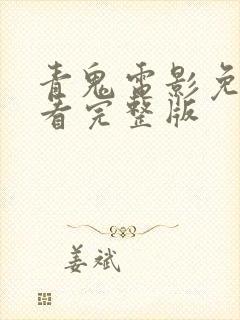 青鬼雷影免
看完整版
姜斌